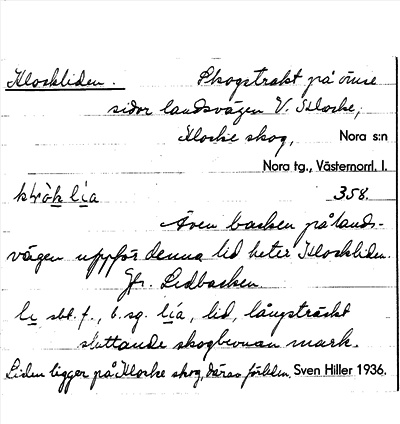 Klockliden. Skogstrakt på ömse
sidor landsvägen V. Klocke,
Klocke skog, Nora s:n
Nora tg., Västernorrl. l.
358.
Även backen på lands-
vägen uppför denna lid heter Klockliden.
Jfr. Lidbacken
sbt. f., b. sg. lía, lid, långsträckt
sluttande skogbevuxen mark.
Liden ligger på Klocke skog, därav förleden. Sven Hiller 1936.